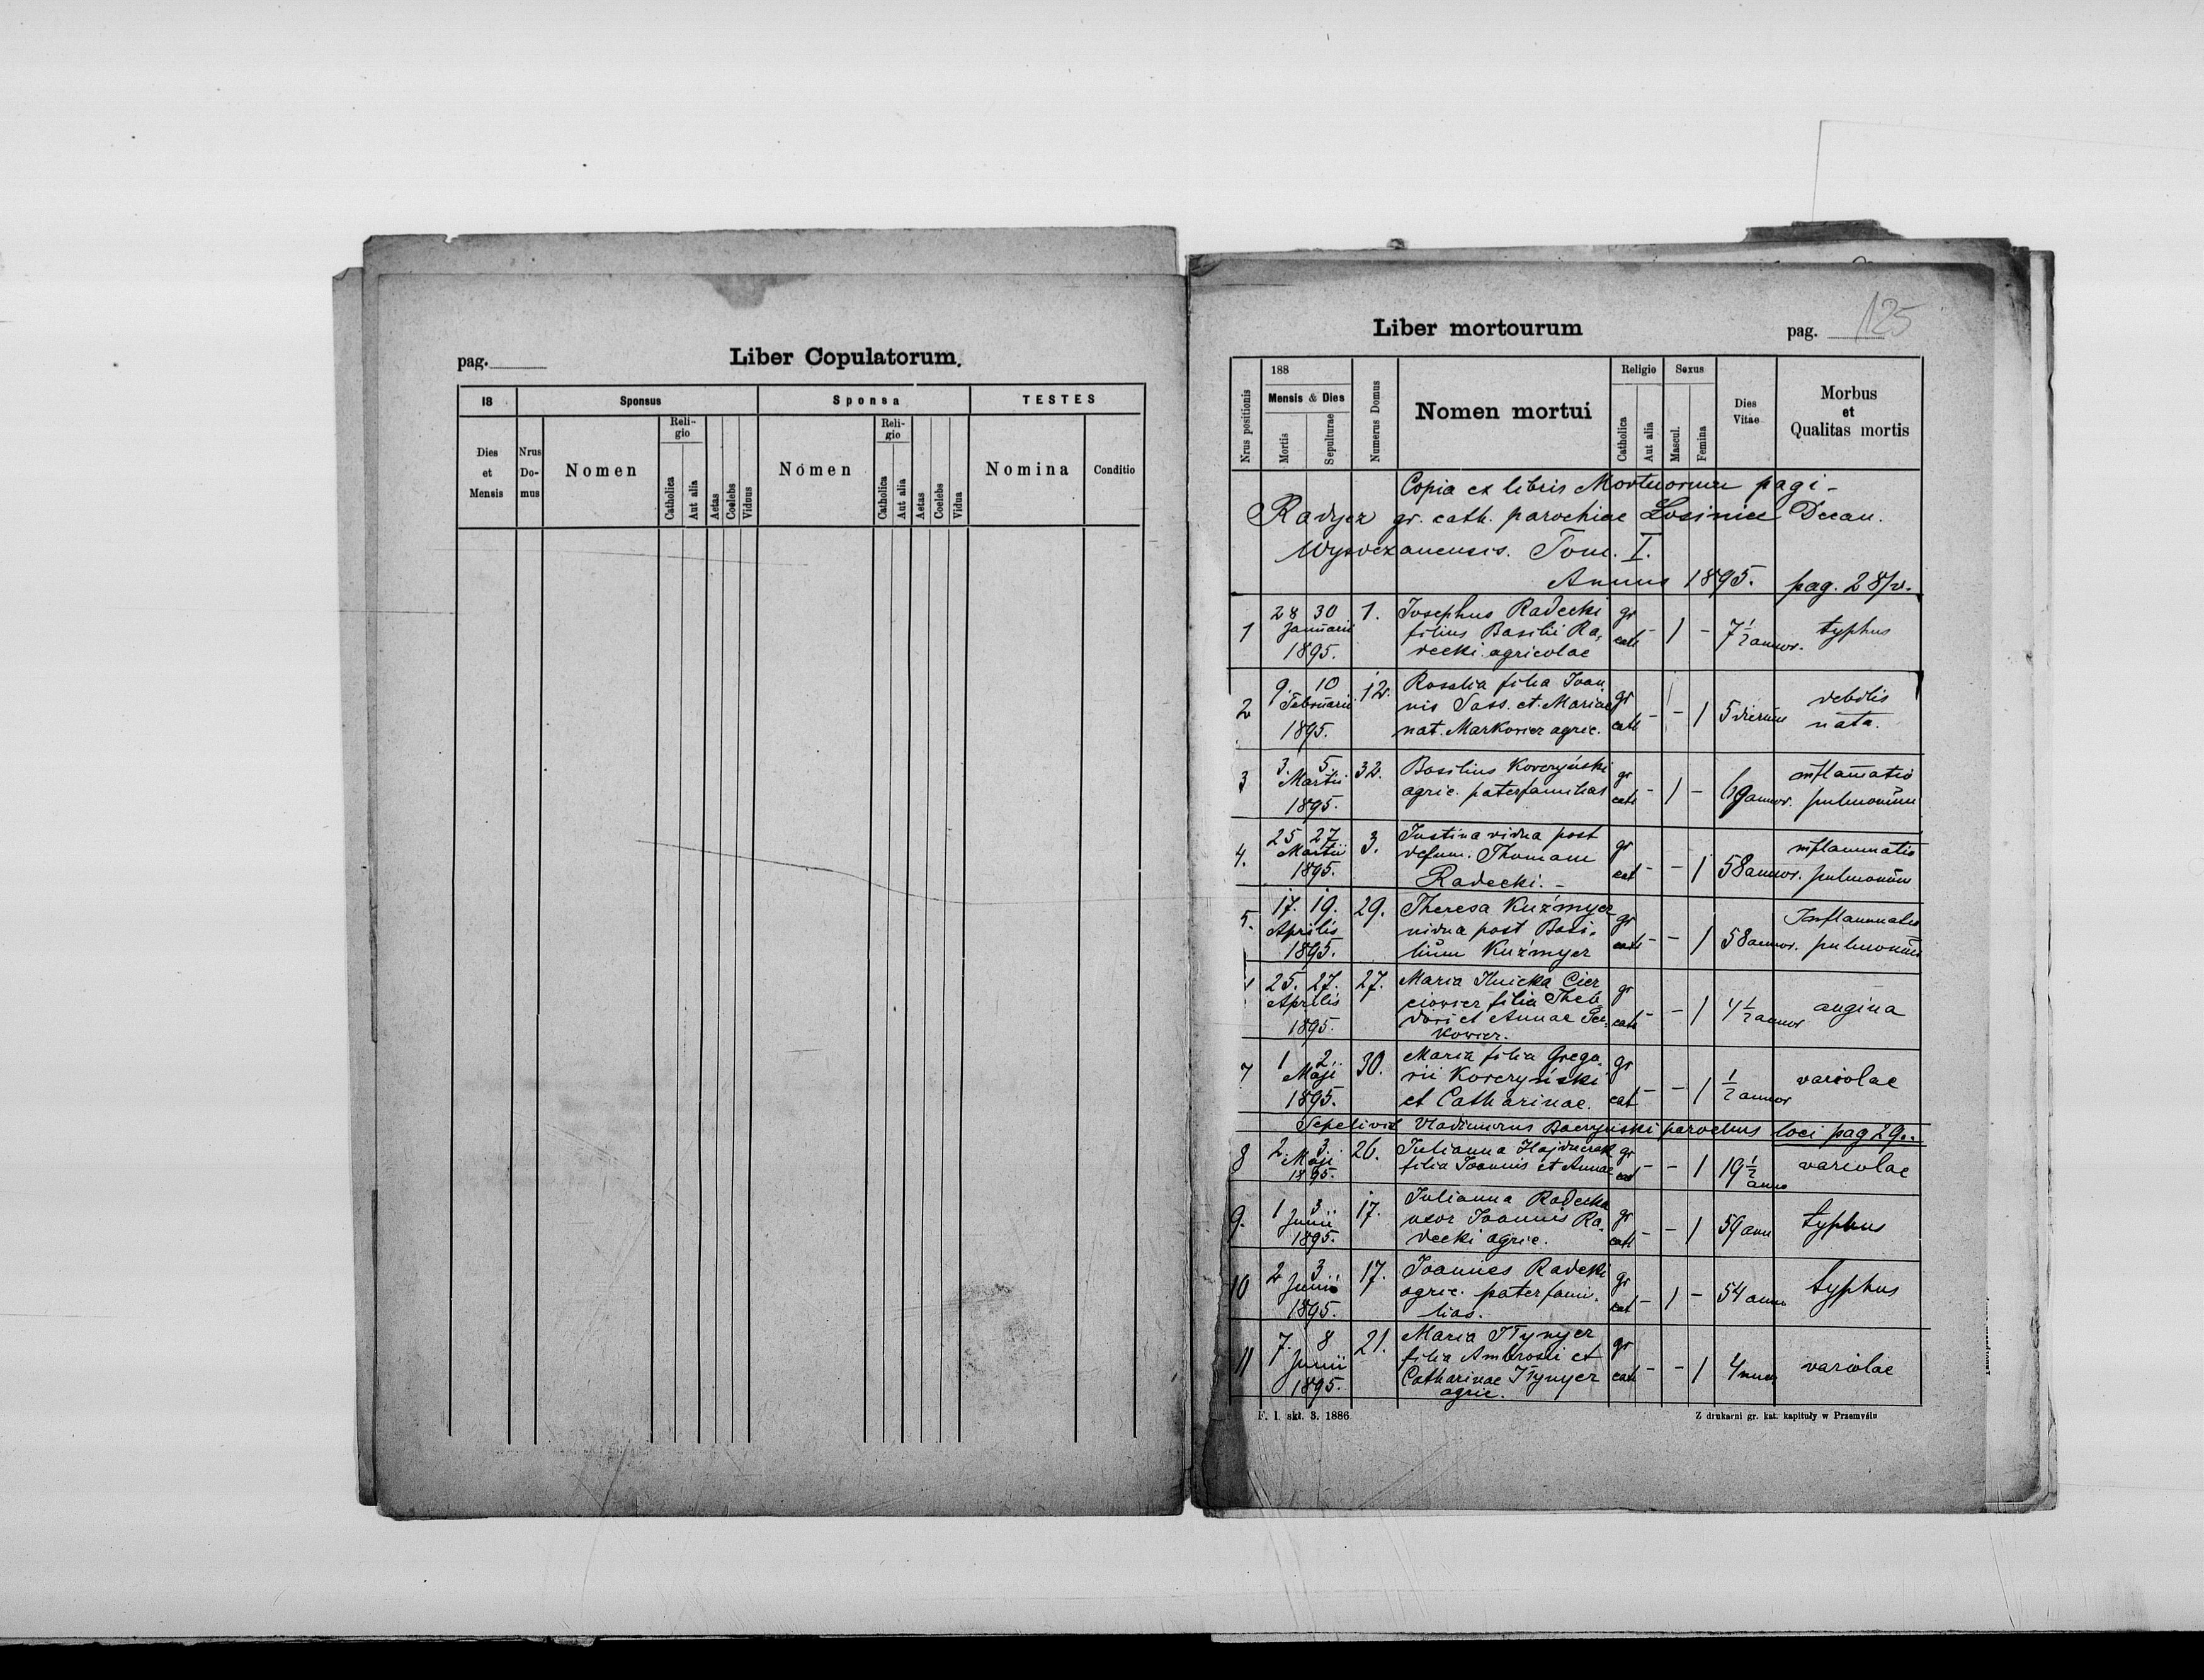 pag.
Liber Copulatorum.
18
Sponsus
Sponsa
TESTES
Dies et Mensis
Nrus Do- mus
Nomen
Reli- gio
Catholica
Aut alia
Aetas
Coelebs
Viduus
Nomen
Reli- gio
Catholica
Aut alia
Aetas
Coelebs
Vidua
Nomina
Conditio
Liber mortourum
pag. 125
Nrus positionis
188
Mensis & Dies
Mortis
Sepulturae
Numerus Domus
Nomen mortui
Religio
Catholica
Aut alia
Sexus
Mascul.
Femina
Dies Vitae
Morbus
et
Qualitas mortis
Copia ex libris Mortuorum pagi -
Radycz gr. cath. parochiae Losiniec Decan.
Wysoczanensis. Tom. I.
Annus 1895. pag. 28/v.
1 28 30 1. Josephus Radecki gr
Januarii filius Basilii Ra, cath - 1 - 7 1/2 annor. typhus
1895. decki agricolae
9. 10 12. Rosalia filia Joan
2 Februarii nis Sass. et Mariae gr debilis
1895. nat. Markowicz agric. cath - - 1 5 dierum nata.
3. 5. 32. Basilius Korczyński gr inflamatio
3 Martii agric. paterfamilias cath - 1 - 69 annor. pulmonum
1895.
25 27 3. Justina vidua post gr inflammatio
4. Martii defun. Thomam
1895. Radecki. - cat - - 1 58 annor. pulmonum
17. 19. 29. Theresa Kuźmycz gr Inflammatio
5. Aprilis vidua post Basi-
1895. lium Kuźmycz cath - - 1 58 annor. pulmonum
25. 27. 27. Maria Ilnicka Cier gr
Aprilis ciowicz filia Theo cath - - 1 4 1/2 annor angina
1895. dori et Annae
kowicz.
1 2. 30. Maria filia Grego gr
7 Maji rii Korczyński - - 1 1/2 annor variolae
1895. et Catharinae. cat
Sepelivit Vladimirus Baczyński parochus loci pag 29..
8 2. 3. 26. Julianna Hajduczek gr
Maji filia Joannis et Annae cat - - 1 19 1/2 anno variolae
1895.
9. 1 3. 17. Julianna Radecka gr
Junii uxor Joannis Ra- - - 1 59 ann typhus
1895. decki agric. cath
10 2 3. 17. Joannes Radecki gr
Junii agric. paterfami- - 1 - 54 anno typhus
1895. lias. cat
7. 8 21. Maria Tynycz gr
11 Junii filia Ambrosii et
1895. Catharinae Tynycz cath - - 1 4 variolae
agric.
F. 1. skł. 3. 1886
Z drukarni gr. kat. kapituły w Przemyślu